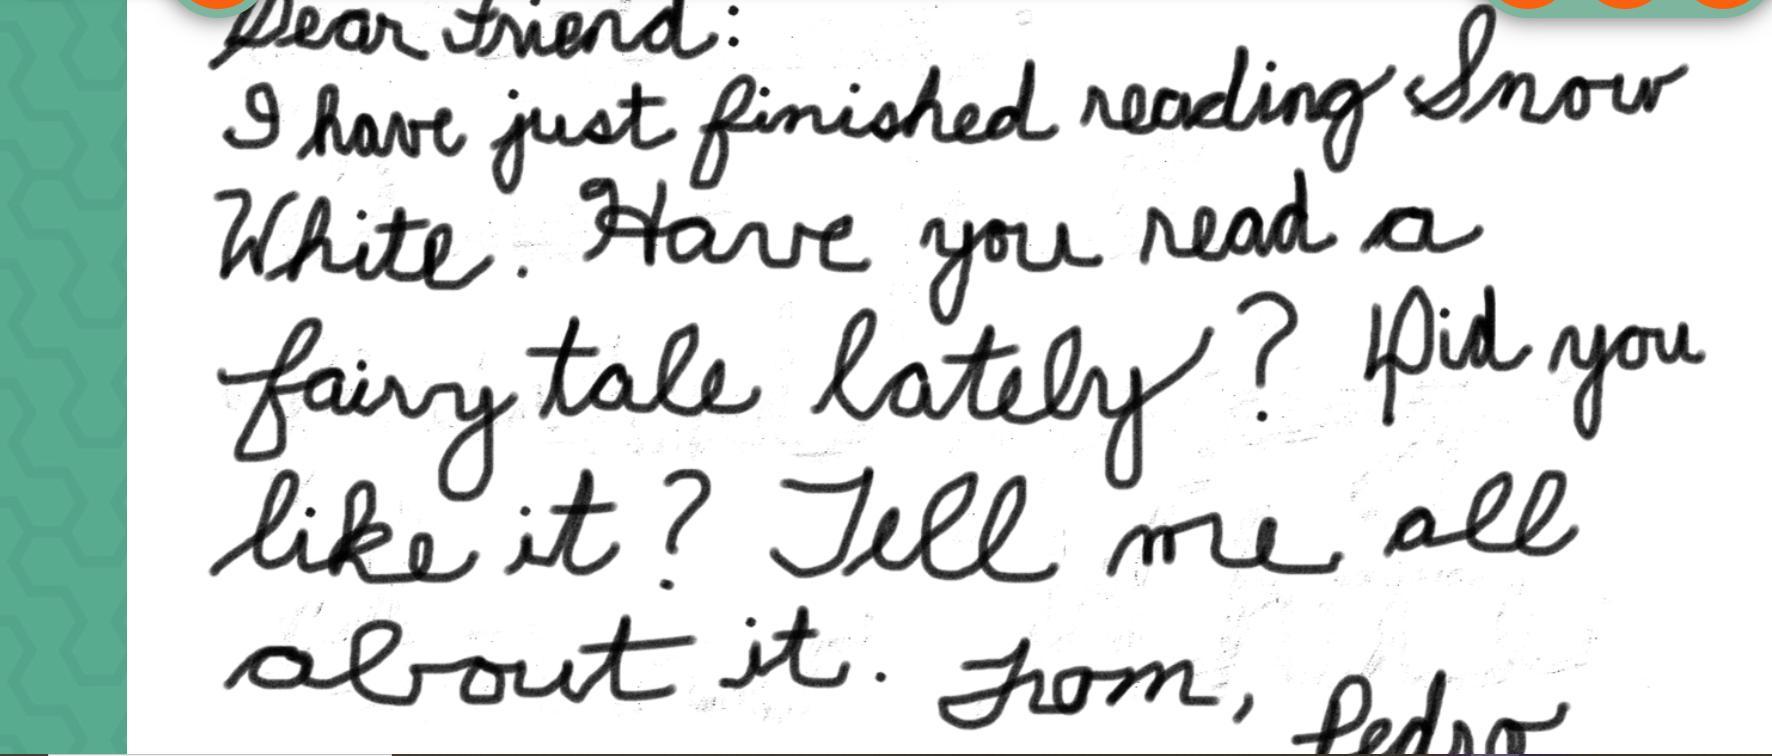 Dear Friend:
I have just finished reading Snow
White. Have you read a
fairy tale lately? Did you
like it? Tell me all
about it. From,
Pedro